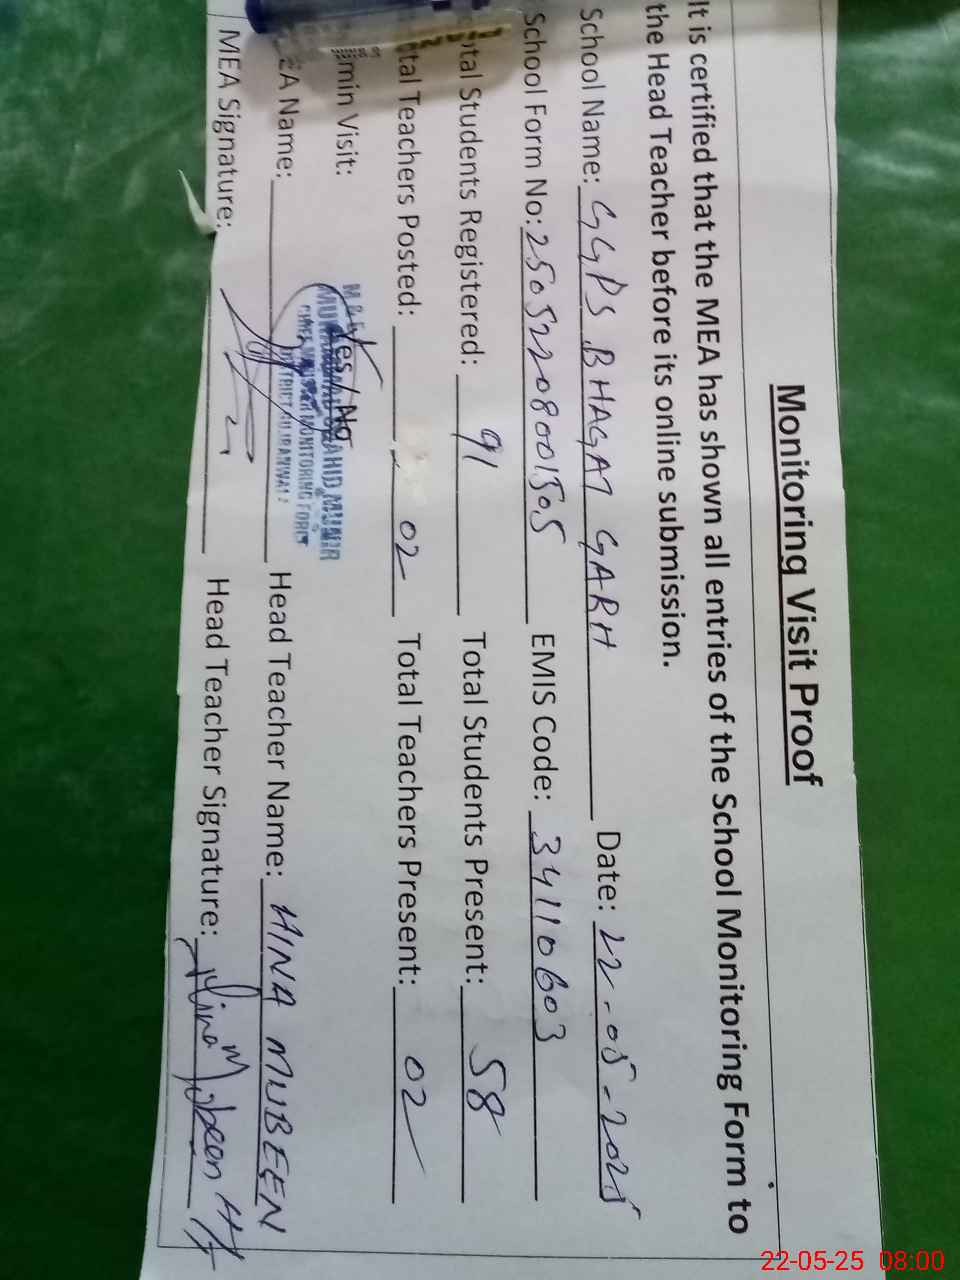 Monitoring Visit Proof
It is certified that the MEA has shown all entries of the School Monitoring Form to
the Head Teacher before its online submission.
School Name: GGPS BHAGAT GARH Date: 22-05-2025
School Form No: 25052208001505 EMIS Code: 34110603
tal Students Registered: 91 Total Students Present: 58
tal Teachers Posted: 02 Total Teachers Present: 02
min Visit: Yes / No
EA Name: Head Teacher Name: HINA MUBEEN
MEA Signature: Head Teacher Signature: Hina Mobeen
M & E
SHAHID MUNIR
CHIEF MINISTER MONITORING FORCE
DISTRICT GUJRANWALA
22-05-25 08:00